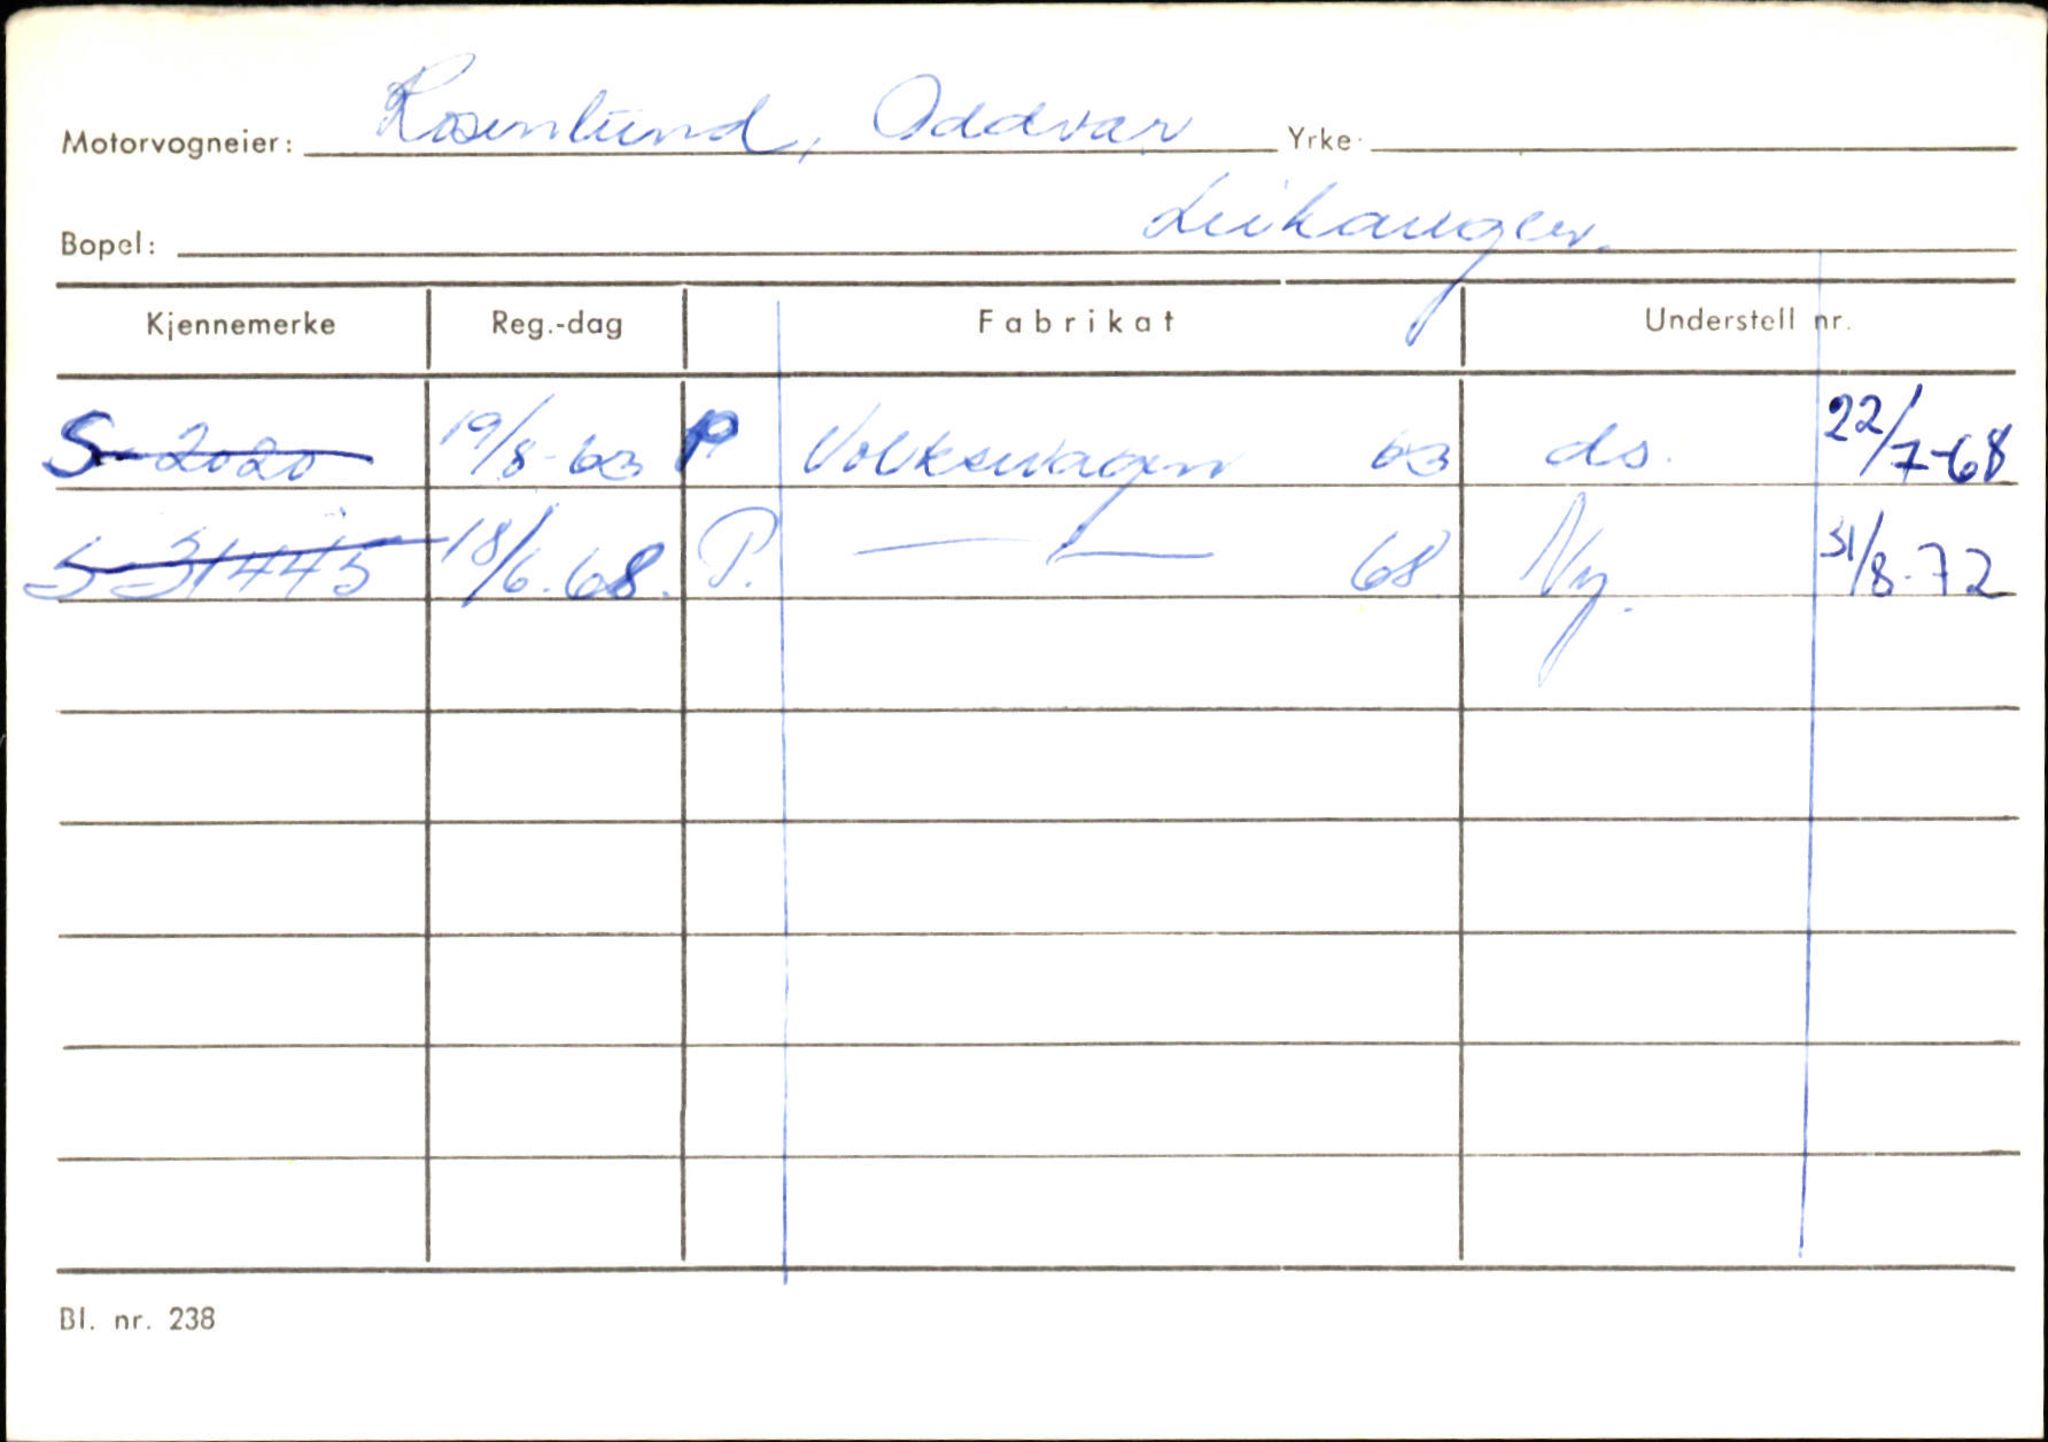 Motorvogneier: Rosenlund, Oddvar Yrke:
Bopel: Leikanger.
Kjennemerke Reg.-dag Fabrikat Understell nr.
S-2020 19/8-63 P Volkswagen 63 ds. 22/7-68
S-31445 18/6.68. P. — " — 68 Ny. 31/8-72
Bl. nr. 238